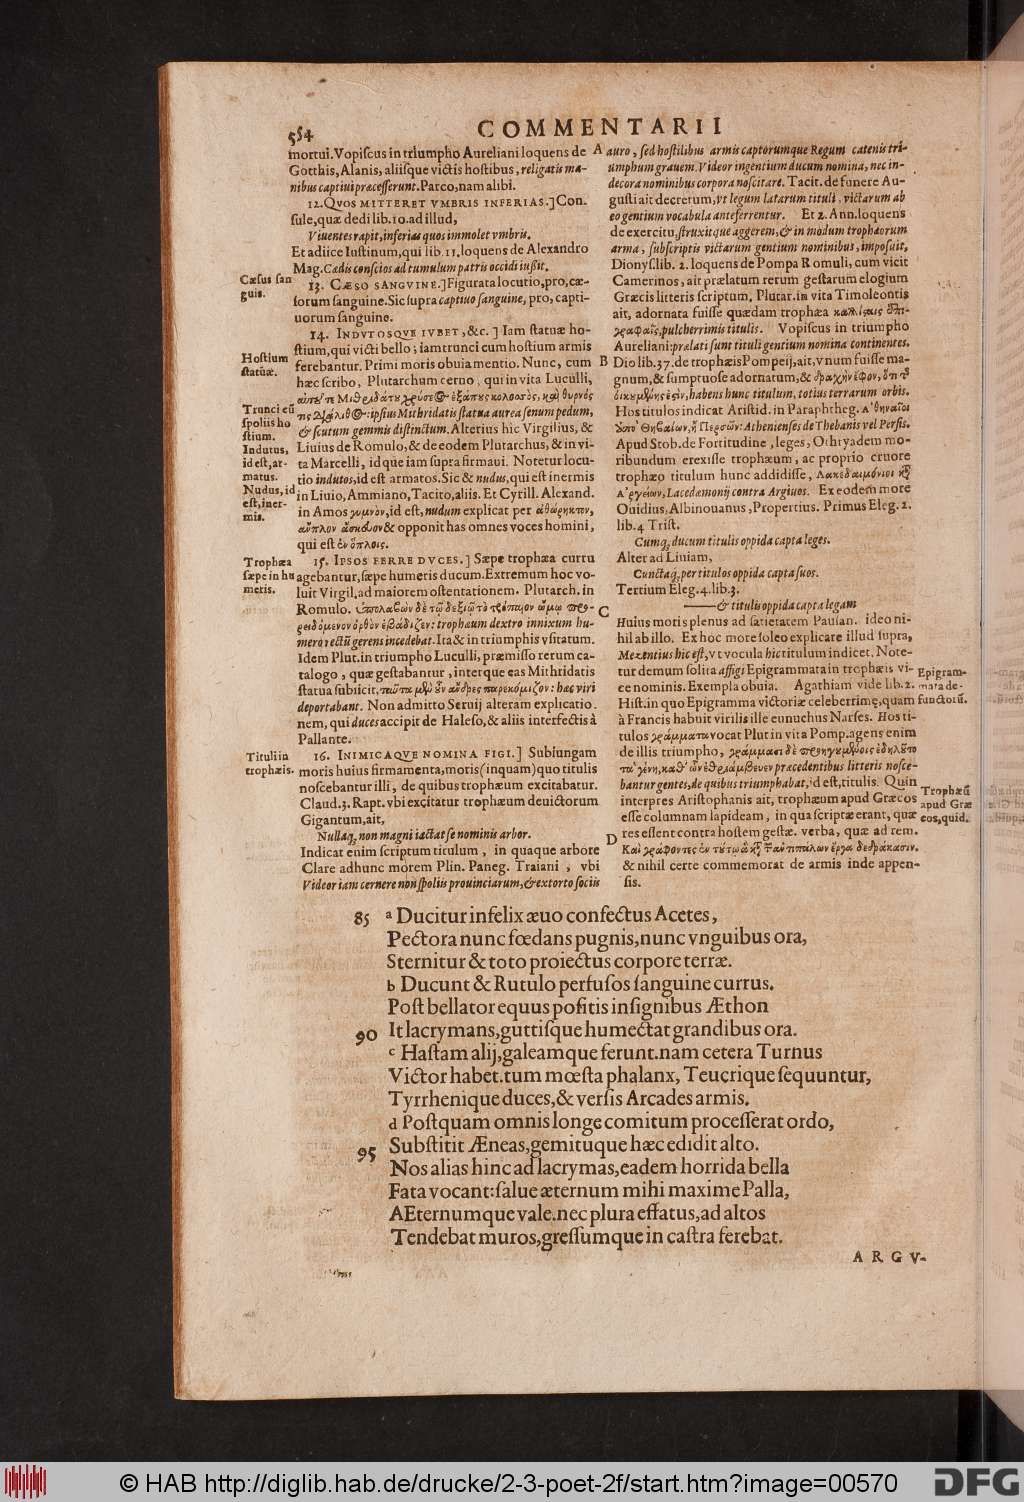 554
COMMENTARII
mortui. Vopiſcus in triumpho Aureliani loquens de
Gotthis, Alanis, aliiſque victis hoſtibus, religatis ma-
nibus captiui præceſſerunt. Parco, nam alibi.
12. QVOS MITTERET VMBRIS INFERIAS.] Con-
ſule, quæ dedi lib. 10. ad illud,
Viuentes rapit, inferias quos immolet vmbris.
Et adiice Iuſtinum, qui lib. 11. loquens de Alexandro
Mag. Cædis conſcios ad tumulum patris occidi iuſsit.
Cæſus ſan
guis.
13. CÆSO SANGVINE.] Figurata locutio, pro, cæ-
ſorum ſanguine. Sic ſupra captiuo ſanguine, pro, capti-
uorum ſanguine.
14. INDVTOSQVE IVBET, &c.] Iam ſtatuæ ho-
ſtium, qui victi bello; iam trunci cum hoſtium armis
Hoſtium
ſtatuæ.
ferebantur. Primi moris obuia mentio. Nunc, cum
hæc ſcribo, Plutarchum cerno, qui in vita Luculli,
της διάλιθος: ipſius Mithridatis ſtatua aurea ſenum pedum,
& ſcutum gemmis diſtinctum. Alterius hîc Virgilius, &
Trunci cū
ſpoliis ho
ſtium.
Liuius de Romulo, & de eodem Plutarchus, & in vi-
ta Marcelli, id que iam ſupra firmaui. Notetur locu-
tio indutos, id eſt armatos. Sic & nudus, qui eſt inermis
in Liuio, Ammiano, Tacito, aliis. Et Cyrill. Alexand.
Indutus,
id eſt, ar-
matus.
Nudus, id
eſt, iner-
mis.
in Amos γυμνὸν, id eſt, nudum explicat per ἀθώρηκτον,
ἄνοπλον ἄσκευον & opponit has omnes voces homini,
qui eſt ἐν ὅπλοις.
15. IPSOS FERRE DVCES.] Sæpe trophæa curru
Trophæa
ſæpe in hu
meris.
agebantur, ſæpe humeris ducum. Extremum hoc vo-
luit Virgil. ad maiorem oſtentationem. Plutarch. in
Romulo. ὑπολαβὼν δὲ τῷ δεξιῷ τὸ τρόπαιον ὤμῳ προ-
ρειδόμενον ὀρθὸν ἐβάδιζεν: trophæum dextro innixum hu-
mero rectū gerens incedebat. Ita & in triumphis vſitatum.
Idem Plut. in triumpho Luculli, præmiſſo rerum ca-
talogo, quæ geſtabantur, interque eas Mithridatis
ſtatua ſubiicit, ταῦτα μὲν οὖν ἄνδρες παρεκόμιζον: hæc viri
deportabant. Non admitto Seruij alteram explicatio-
nem, qui duces accipit de Haleſo, & aliis interfectis à
Pallante.
16. INIMICAQVE NOMINA FIGI.] Subiungam
Tituli in
trophæis.
moris huius firmamenta, moris (inquam) quo titulis
noſcebantur illi, de quibus trophæum excitabatur.
Claud. 3. Rapt. vbi excitatur trophæum deuictorum
Gigantum, ait,
Nullaq, non magni iactat ſe nominis arbor.
Indicat enim ſcriptum titulum, in quaque arbore
Clare adhunc morem Plin. Paneg. Traiani, vbi
Videor iam cernere non ſpoliis prouinciarum, & extorto ſociis
A auro, ſed hoſtilibus armis captorumque Regum catenis tri-
umphum grauem. Videor ingentium ducum nomina, nec in-
decora nominibus corpora noſcitare. Tacit. de funere Au-
guſti ait decretum, vt legum latarum tituli, victarum ab
eo gentium vocabula anteferrentur. Et 2. Ann. loquens
de exercitu, ſtruxit que aggerem, & in modum trophæorum
arma, ſubſcriptis victarum gentium nominibus, impoſuit.
Dionyſ. lib. 2. loquens de Pompa Romuli, cum vicit
Camerinos, ait prælatum rerum geſtarum elogium
Græcis litteris ſcriptum. Plutar. in vita Timoleontis
ait, adornata fuiſſe quædam trophæa καλλίσταις ἐπι-
γραφαῖς, pulcherrimis titulis. Vopiſcus in triumpho
Aureliani: prælati ſunt tituli gentium nomina continentes.
B Dio lib. 37. de trophæis Pompeij, ait, vnum fuiſſe ma-
gnum, & ſumptuoſe adornatum, & γραφὴν ἔφον, ὅτι τῆς
οἰκουμένης ἐστιν, habens hunc titulum, totius terrarum orbis.
Hos titulos indicat Ariſtid. in Paraphtheg. Ἀθηναῖοι
ἀπὸ Θηβαίων, ἢ Περσῶν: Athenienſes de Thebanis vel Perſis.
Apud Stob. de Fortitudine, leges, Othryadem mo-
ribundum erexiſſe trophæum, ac proprio cruore
trophæo titulum hunc addidiſſe, Λακεδαιμόνιοι κατ'
Ἀργείων, Lacedæmonij contra Argiuos. Ex eodem more
Ouidius, Albinouanus, Propertius. Primus Eleg. 2.
lib. 4 Triſt.
Cumq, ducum titulis oppida capta leges.
Alter ad Liuiam,
Cunctaq, per titulos oppida capta ſuos.
Tertium Eleg. 4. lib. 3.
C —— & titulis oppida capta legam
Huius moris plenus ad ſatietatem Pauſan. ideo ni-
hil ab illo. Ex hoc more ſoleo explicare illud ſupra,
Mezentius hic eſt, vt vocula hic titulum indicet. Note-
tur demum ſolita affigi Epigrammata in trophæis vi-
ce nominis. Exempla obuia. Agathiam vide lib. 2.
Epigram-
mata de-
functorū.
Hiſt. in quo Epigramma victoriæ celeberrimę, quam
à Francis habuit virilis ille eunuchus Narſes. Hos ti-
tulos γράμματα vocat Plut in vita Pomp. agens enim
de illis triumpho, γράμμασι δὲ προηγουμένοις ἐδηλοῦτο
τὰ γένη, καθ' ὧν ἐθριάμβευεν præcedentibus litteris noſce-
bantur gentes, de quibus triumphabat, id eſt, titulis. Quin
interpres Ariſtophanis ait, trophæum apud Græcos
Trophæū
apud Græ
cos, quid.
eſſe columnam lapideam, in qua ſcriptæ erant, quæ
D res eſſent contra hoſtem geſtæ. verba, quæ ad rem.
Καὶ γράφοντες ἐν τούτῳ ἃ κατὰ τῶν ἀντιπάλων ἔργα δεδράκασιν.
& nihil certe commemorat de armis inde appen-
ſis.
85 a Ducitur infelix æuo confectus Acetes,
Pectora nunc fœdans pugnis, nunc vnguibus ora,
Sternitur & toto proiectus corpore terræ.
b Ducunt & Rutulo perfuſos ſanguine currus.
Poſt bellator equus poſitis inſignibus Æthon
90 It lacrymans, guttiſque humectat grandibus ora.
c Haſtam alij, galeamque ferunt. nam cetera Turnus
Victor habet. tum mœſta phalanx, Teucrique ſequuntur,
Tyrrhenique duces, & verſis Arcades armis.
d Poſtquam omnis longe comitum proceſſerat ordo,
95 Subſtitit Æneas, gemituque hæc edidit alto.
Nos alias hinc ad lacrymas, eadem horrida bella
Fata vocant: ſalue æternum mihi maxime Palla,
AEternumque vale. nec plura effatus, ad altos
Tendebat muros, greſſumque in caſtra ferebat.
ARGV-
© HAB http://diglib.hab.de/drucke/2-3-poet-2f/start.htm?image=00570
DFG